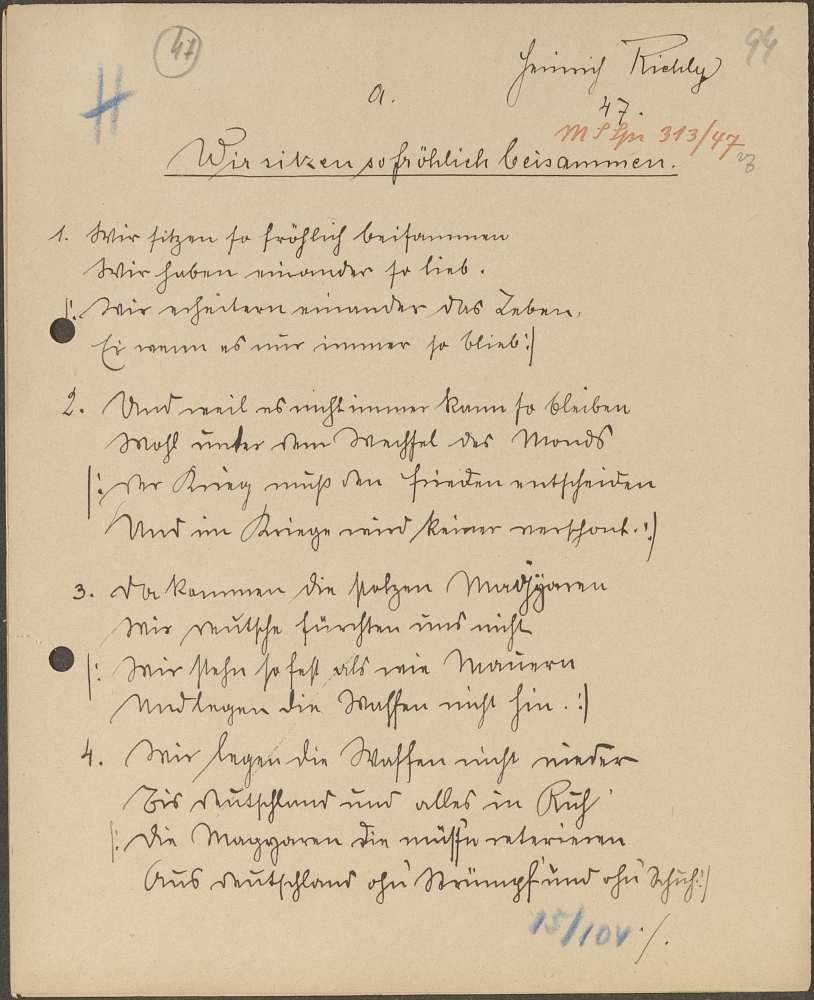 47
94
Heinrich Richly
a.
47.
313/47
Wir sitzen so fröhlich beisammen.
1. Wir sitzen so fröhlich beisammen
Wir haben einander so lieb.
|: Wir erheitern einander das Leben,
Ei wenn es nur immer so blieb :|
2. Und weil es nicht immer kann so bleiben
Wohl unter dem Wechsel des Monds
|: Der Krieg muß den Frieden entscheiden
Und im Kriege wird keiner verschont. :|
3. Da kommen die stolzen Madjyaren
Wir deutsche fürchten uns nicht
|: Wir stehn so fest als wie Mauern
Und legen die Waffen nicht hin. :|
4. Wir legen die Waffen nicht nieder
Bis deutschland und alles in Ruh'
|: Die Magyaren die müss'n reterieren
Aus deutschland ohn' Strümpf' und ohn' Schuh :|
15/104 ./.